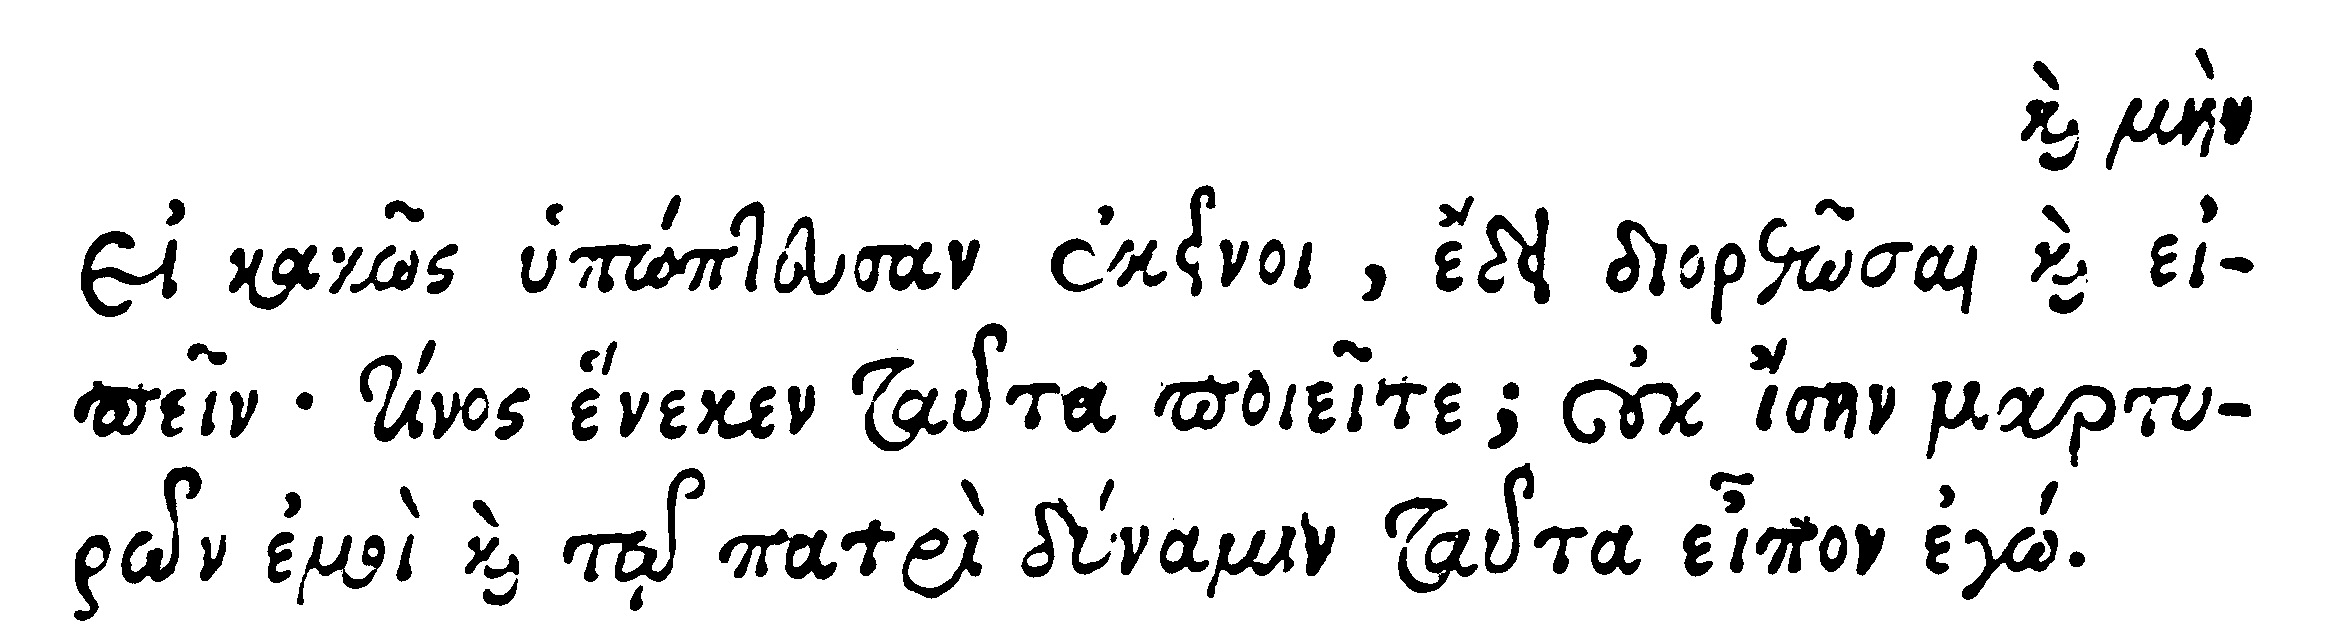 ϗ̀ μὴν
Εἰ κακῶς ὑπώπτευσαν ἐκεῖνοι, ἔδει διορθῶσαι ϗ̀ εἰ-
πεῖν· τίνος ἕνεκεν ταῦτα ποιεῖτε; οὐκ ἴσην μαρτυ-
ρῶν ἐμοὶ ϗ̀ τῷ πατρὶ δύναμιν ταῦτα εἶπον ἐγώ.